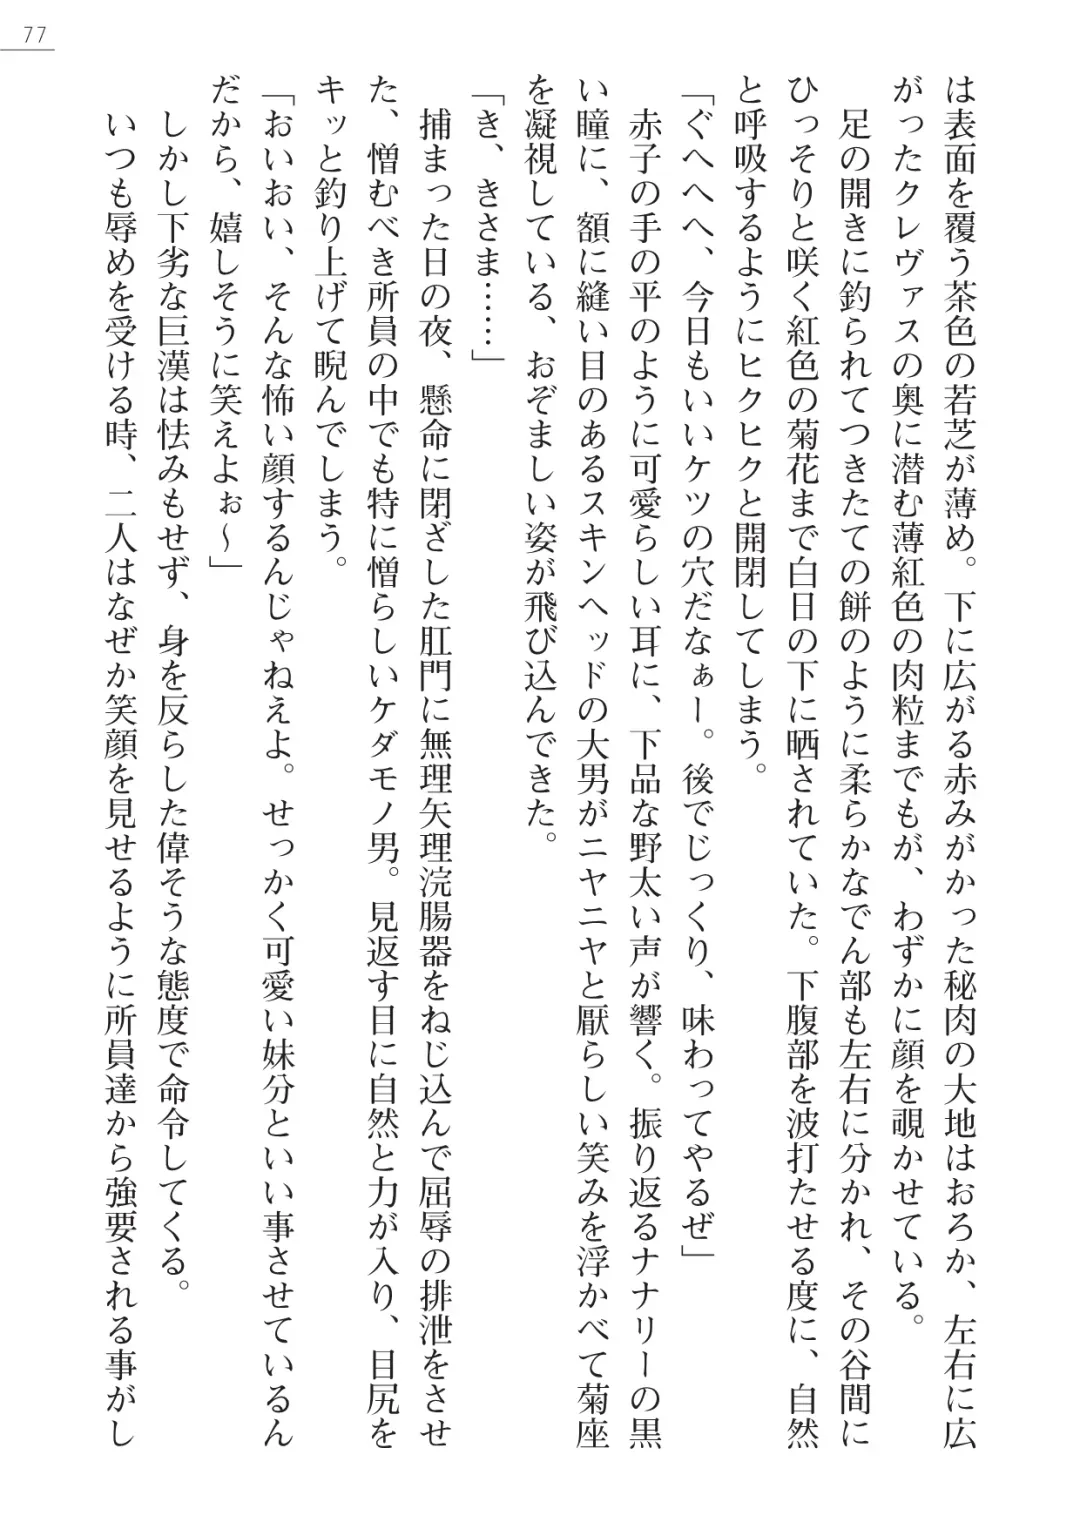 77
は表面を覆う茶色の若芝が薄め。下に広がる赤みがかった秘肉の大地はおろか、左右に広
がったクレヴァスの奥に潜む薄紅色の肉粒までもが、わずかに顔を覗かせている。
足の開きに釣られてつきたての餅のように柔らかなでん部も左右に分かれ、その谷間に
ひっそりと咲く紅色の菊花まで白日の下に晒されていた。下腹部を波打たせる度に、自然
と呼吸するようにヒクヒクと開閉してしまう。
「ぐへへへ、今日もいいケツの穴だなぁー。後でじっくり、味わってやるぜ」
赤子の手の平のように可愛らしい耳に、下品な野太い声が響く。振り返るナナリーの黒
い瞳に、額に縫い目のあるスキンヘッドの大男がニヤニヤと厭らしい笑みを浮かべて菊座
を凝視している、おぞましい姿が飛び込んできた。
「き、きさま……」
捕まった日の夜、懸命に閉ざした肛門に無理矢理浣腸器をねじ込んで屈辱の排泄をさせ
た、憎むべき所員の中でも特に憎らしいケダモノ男。見返す目に自然と力が入り、目尻を
キッと釣り上げて睨んでしまう。
「おいおい、そんな怖い顔するんじゃねえよ。せっかく可愛い妹分といい事させているん
だから、嬉しそうに笑えよぉ～」
しかし下劣な巨漢は怯みもせず、身を反らした偉そうな態度で命令してくる。
いつも辱めを受ける時、二人はなぜか笑顔を見せるように所員達から強要される事がし